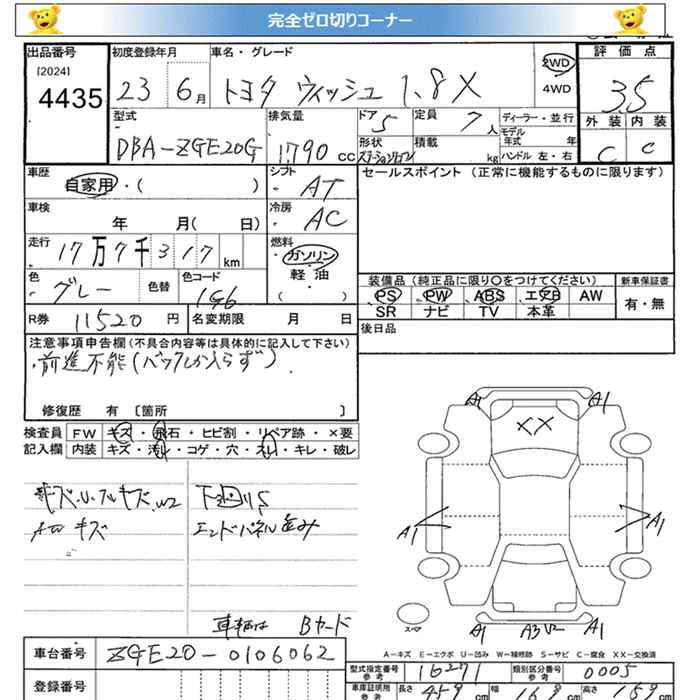 完全ゼロ切りコーナー
出品番号 初度登録年月 車名・グレード 2WD 評価点
[2024] 4WD
4435 23 6月 トヨタ ウィッシュ 1.8X 3.5
型式 排気量 ドア 5 定員 7人 ディーラー・並行 外装 内装
モデル年式 年
DBA-ZGE20G 1790cc 形状 ステーションワゴン 積載 kg ハンドル 左・右 C C
車歴 シフト セールスポイント (正常に機能するものに限ります)
自家用・( ) AT
車検 冷房
年 月( 日) AC
走行 17万7千317km 燃料
ガソリン
色 グレー 色替 色コード 1G6 軽・油 装備品(純正品に限り○をつけてください) 新車保証書
・( ) PS PW ABS エアB AW 有・無
R券 11520円 名変期限 月 日 SR ナビ TV 本革
後日品
注意事項申告欄(不具合内容等は具体的に記入して下さい)
・前進不能(バックしか入らず).
修復歴 有 〔箇所 〕
検査員 FW キズ・飛石・ヒビ割・リペア跡・×要
記入欄 内装 キズ・汚レ・コゲ・穴・スレ・キレ・破レ
A1 A1
XX
キズ・U・フルキズ・W2 下回りS
AW キズ エンドパネル歪み
A1 A1
スペア
車輌は Bヤード A1 A3 U2 A1
A-キズ E-エクボ U-凹み W-補修跡 S-サビ C-腐食 XX-交換済
車台番号 ZGE20-0106062 型式指定番号 参考 16271 類別区分番号 参考 0005
登録番号 車庫証明用 参考 長さ 459cm 幅 169cm 高さ 159cm